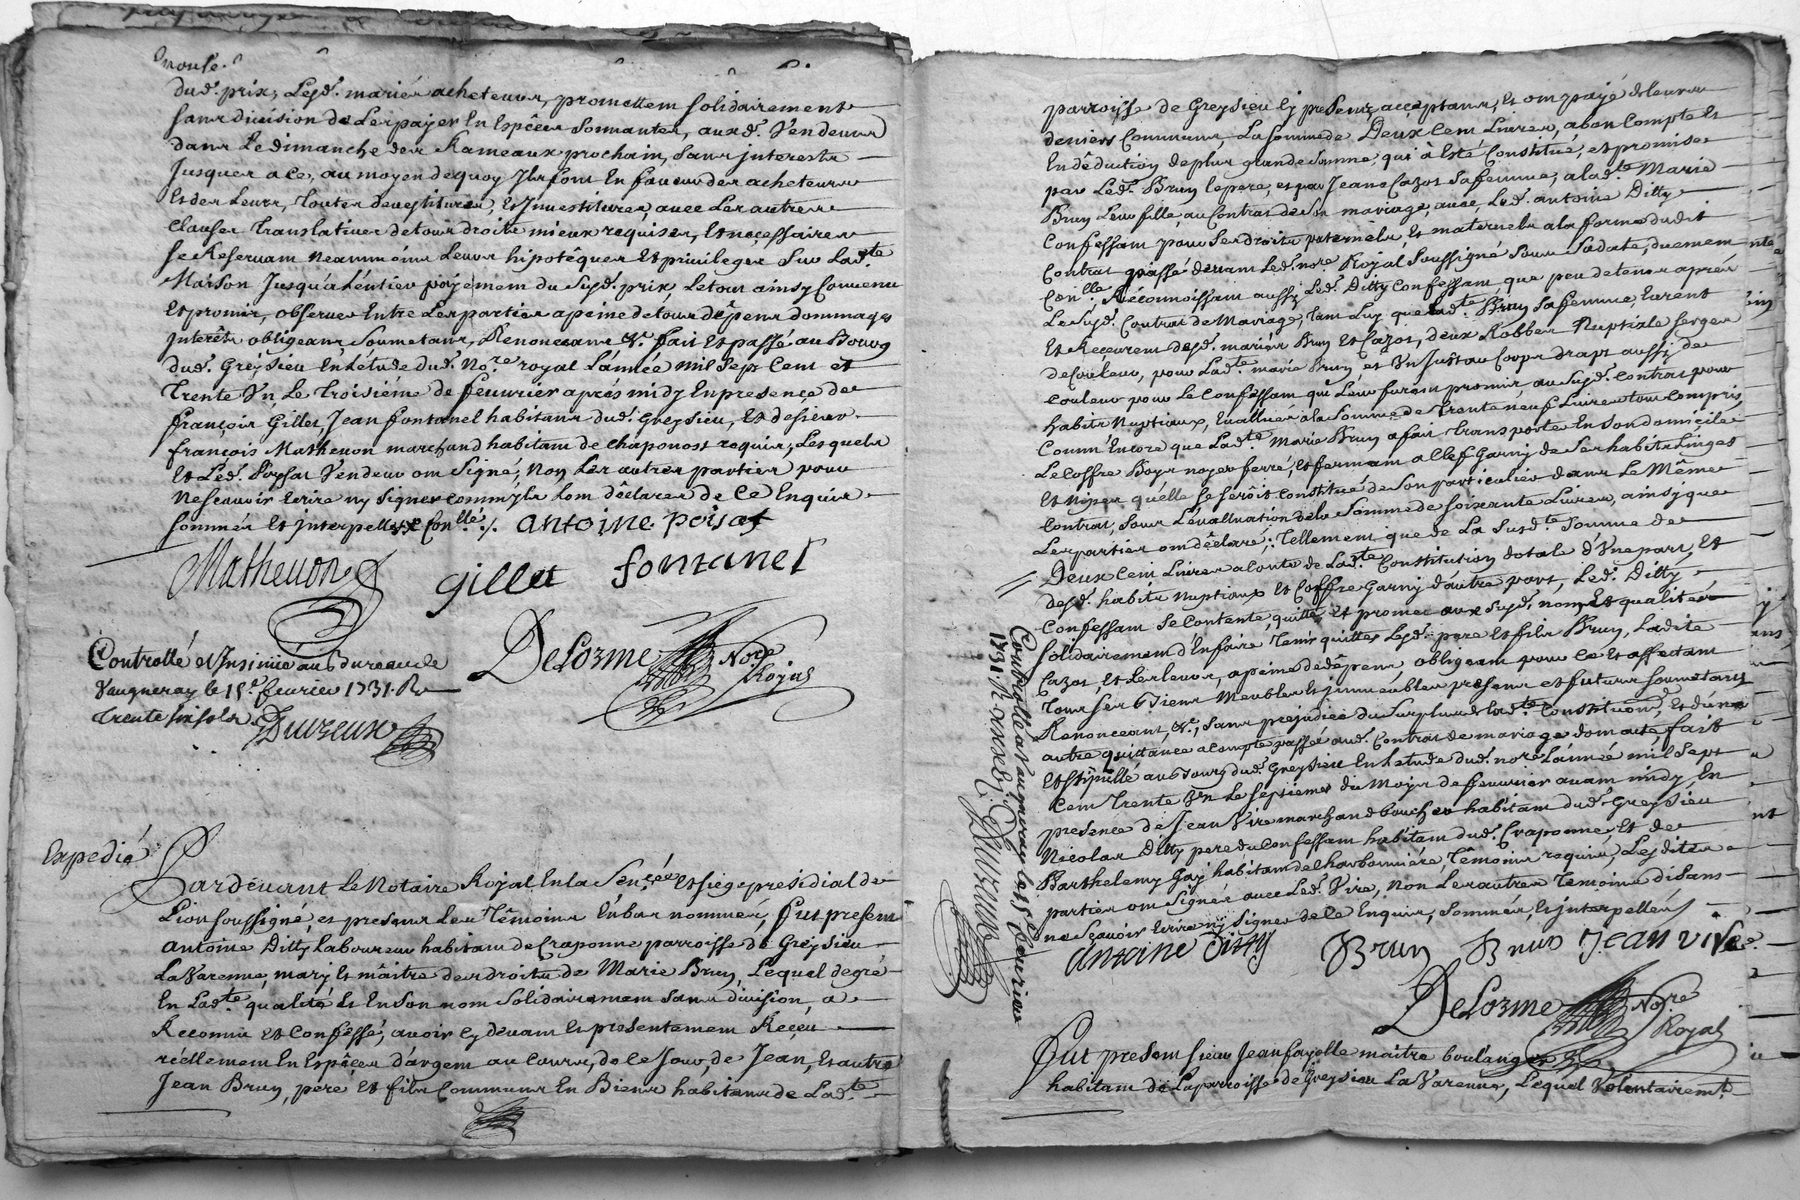 dud.t prix, Lesd.t mariés acheteurs, promettent solidairement
sans division de Les payer En Espèces sonnantes, auxd.t Vendeurs
dans Le dimanche des Rameaux prochain, sans jnterests
jusques a ce, au moyen dequoy Jls font En faveur des acheteurs
Et des Leurs, toutes devestitures, Et Jnvestitures, avec Les autres
clauses translatives de tous droits mieux requises, Et necessaires
se Reservant neanmoins Leurs hipotêques Et privileges sur Lad.te
Maison Jusqu'à L'entier payement du susd.t prix, Le tout ainsy Convenu
Et promis, observer Entre Les parties a peine de tous dêpens dommages
Jnterêts obligeans, soumetans, Renonceans &.c fait Et passé au Bourg
dud.t Greysieu En L'etude dud.t No.re royal L'année mil sept Cent et
Trente Vn, Le troisième de feuvrier aprés midy En presence de
françois Gillet, Jean fontanel habitans dud.t Greysieu, Et de sieur
françois Mathevon marchand habitant de chaponost requis, Lesquels
Et Led.t Poysat Vendeur ont signé, Non Les autres parties pour
ne sçavoir Ecrire ny signer comm'jls L'ont dêclaré de Ce Enquis
sommés Et jnterpellés & Con.llé ./. antoine poisat
Mathevon gillet fontanel
DeLorme No.re Royal
Controllé et Insinué au Bureau de
Vaugneray le 15.e fevrier 1731. R
trente six sols
Duzeux
Expedié
Pardevant Le Notaire Royal En la Sen.çée Et siége presidial de
Lion soussigné, et presens Les Têmoins En bas nommés, fut present
antoine Ditty Laboureur habitant de Craponne parroisse de Greysieu
La Varenne, mary Et maître des droits de Marie Brun, Lequel de gré
En Lad.te qualité Et En son nom solidairement sans division, a
Reconnu et Confessé, avoir cy devant Et presentement Reçeu
réellement En Espêces d'argent au Cours, de ce Jour, de Jean, Et autre
Jean Brun, pere Et fils Communs En Biens habitans de Lad.te
parroisse de Greysieu cy presens, acceptans, Et ont payé de Leurs
deniers Communs, La somme de Deux Cent Livres, a bon Compte Et
En dêduction de plus grande somme qui à Esté Constitué, et promise
par Led.t Brun le pere, et par Jeane Cazot sa femme, a Lad.te Marie
Brun Leur fille au Contrat de son mariage, avec Led.t antoine Ditty
Confessant pour ses droits paternels, Et maternels a la forme dudit
Contrat passé devant Led.t no.re Royal soussigné sous sa date, duement
Con.llé, Reconnoissant aussy Led.t Ditty Confessant, que peu de tems aprés
Le susd.t Contrat de Mariage, tant Luy que Lad.te Brun sa femme, Eurent
Et Reçeurent desd.t mariés Brun Et Cazot, deux Robbes Nuptiale serges
de Couleur, pour Lad.te mariée Brun, et Vn Justau Corps drapt aussy de
couleur pour Le Confessant qui Leur furent promis au susd.t Contrat pour
habits Nuptiaux, Evalluer a la somme de trente neuf Livres tout compris,
Comm'Encore que Lad.te Marie Brun a fait transporté En son domicile
Le Coffre Boys noyer ferré, Et fermant a Clef Garny de ses habits Linges
Et Nipes qu'elle se serôit Constitué de son particulier dans Le Même
Contrat, sous L'évalluation de La somme de soixante Livres, ainsy que
Les parties ont dêclaré; Tellement que de La susd.te somme de
Deux Cent Livres a Conte de Lad.te Constitution dotale d'Vne part, Et
desd.t habits nuptiaux Et Coffre Garny d'autre part, Led.t Ditty
Confessant se Contente, quitte, et promet aux susd.t noms Et qualités
solidairement d'En faire tenir quittes Lesd.t pere Et fils Brun, Ladite
Cazot, Et Les Leurs, a peine de dêpens obligeant pour Ce Et affectant
tous ses Biens Meubles Et jmmeubles presens et futurs soumetant
Renonceant, &.c, sans prejudice du surplus de Lad.te Constitution, Et d'une
autre quittance a compte passée aud.t Contrat de mariage dont acte, fait
Et stipullé au Bourg dud.t Greysieu En L'etude dud.t no.re L'année mil sept
Cent trente Vn Le septieme du Moys de feuvrier avant midy En
presence de Jean Vire marchand boucher habitant dud.t Greysieu
Nicolas Ditty pere du Confessant habitant dud.t Craponne, Et de
Barthelemy Gay habitant de Charbonniére, Têmoins requis, Lesdites
parties ont signés avec Led.t Vire, Non Les autres Temoins disans
ne sçavoir Ecrire ny signer de Ce Enquis, sommés, Et jnterpellés
antoine ditty Brun Brun Jean vire
DeLorme No.re Royal
Controllé a Vaugneray le 15 fevrier
1731. R
Duzeux
Fut present sieur Jean fayolle maitre boulanger
habitant de La parroisse de Greysieu La Varenne, Lequel Volontairem.t